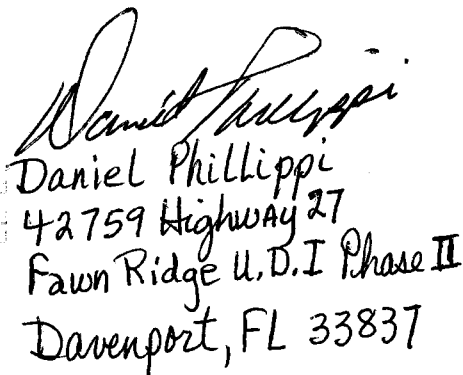 Daniel Phillippi
Daniel Phillippi
42759 Highway 27
Fawn Ridge U.D.I Phase II
Davenport, FL 33837